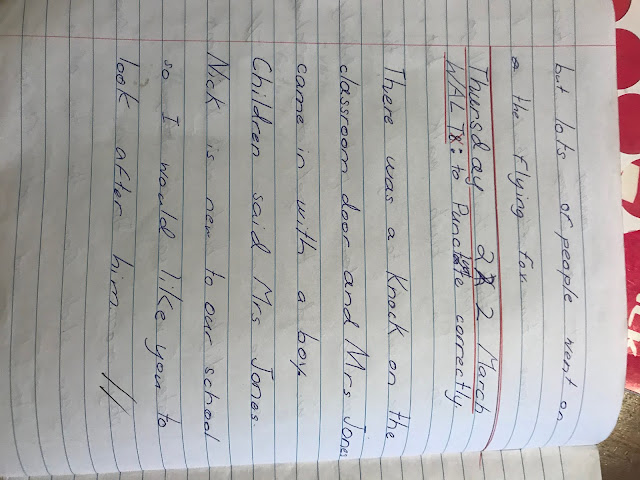 but lots of people went on
the flying fox.
Thursday 22 March
WALT 8: to Punctuate correctly
There was a Knock on the
classroom door and Mrs Jones
came in with a boy.
Children said Mrs Jones
Nick is new to our school
so I would like you to
look after him //
CK